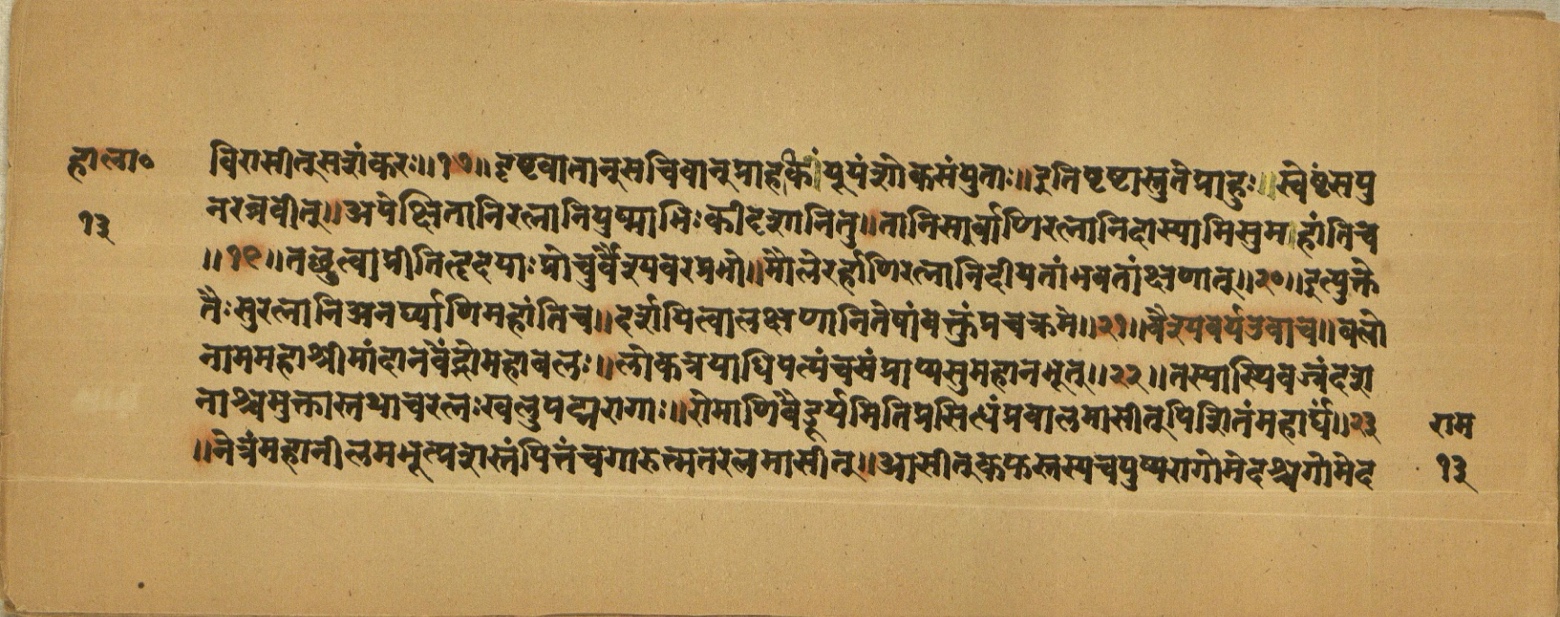 हाला०
१३
विरासीत्सशंकरः॥१७॥दृष्ट्वातान्सचिवान्प्राहकिंयूयंशोकसंयुताः॥इतिपृष्टास्तुतेप्राहुः॥स्वेष्टंसपु
नरब्रवीत्॥अपेक्षितानिरत्नानियुष्माभिःकीदृशानितु॥तानिसार्वाणिरत्नानिदास्यामिसुमाहांतिच
॥१९॥तच्छ्रुत्वाप्रीतिहृदयाःप्रोचुर्वैश्यवरप्रभो॥मौलेरर्हाणिरत्नानिदीयतांभवतांक्षणात्॥२०॥इत्युक्ते
तैःसुरत्नानिअनर्घ्याणिमहांतिच॥दर्शापित्वालक्षणानितेषांवक्तुंप्रचक्रमे॥२१॥वैश्यवर्यउवाच॥बलो
नाममहाश्रीमांदानवेंद्रोमहाबलः॥लोकत्रयाधिपत्यंचसंप्राप्यसुमहानभूत्॥२२॥तस्यास्थिवज्रंदश
नाश्चमुक्तास्तथाचरत्नःखलुपद्मरागाः॥रोमाणिवैडूर्यमितिप्रसिद्धंप्रवालमासीत्पिशितंमहार्घं॥२३
॥नेत्रंमहानीलमभूत्प्रशस्तंपित्तंचगारुत्मतरत्नमासीत्॥आसीत्कफस्तस्यचपुष्परागोमेदश्चगोमेद
राम
१३